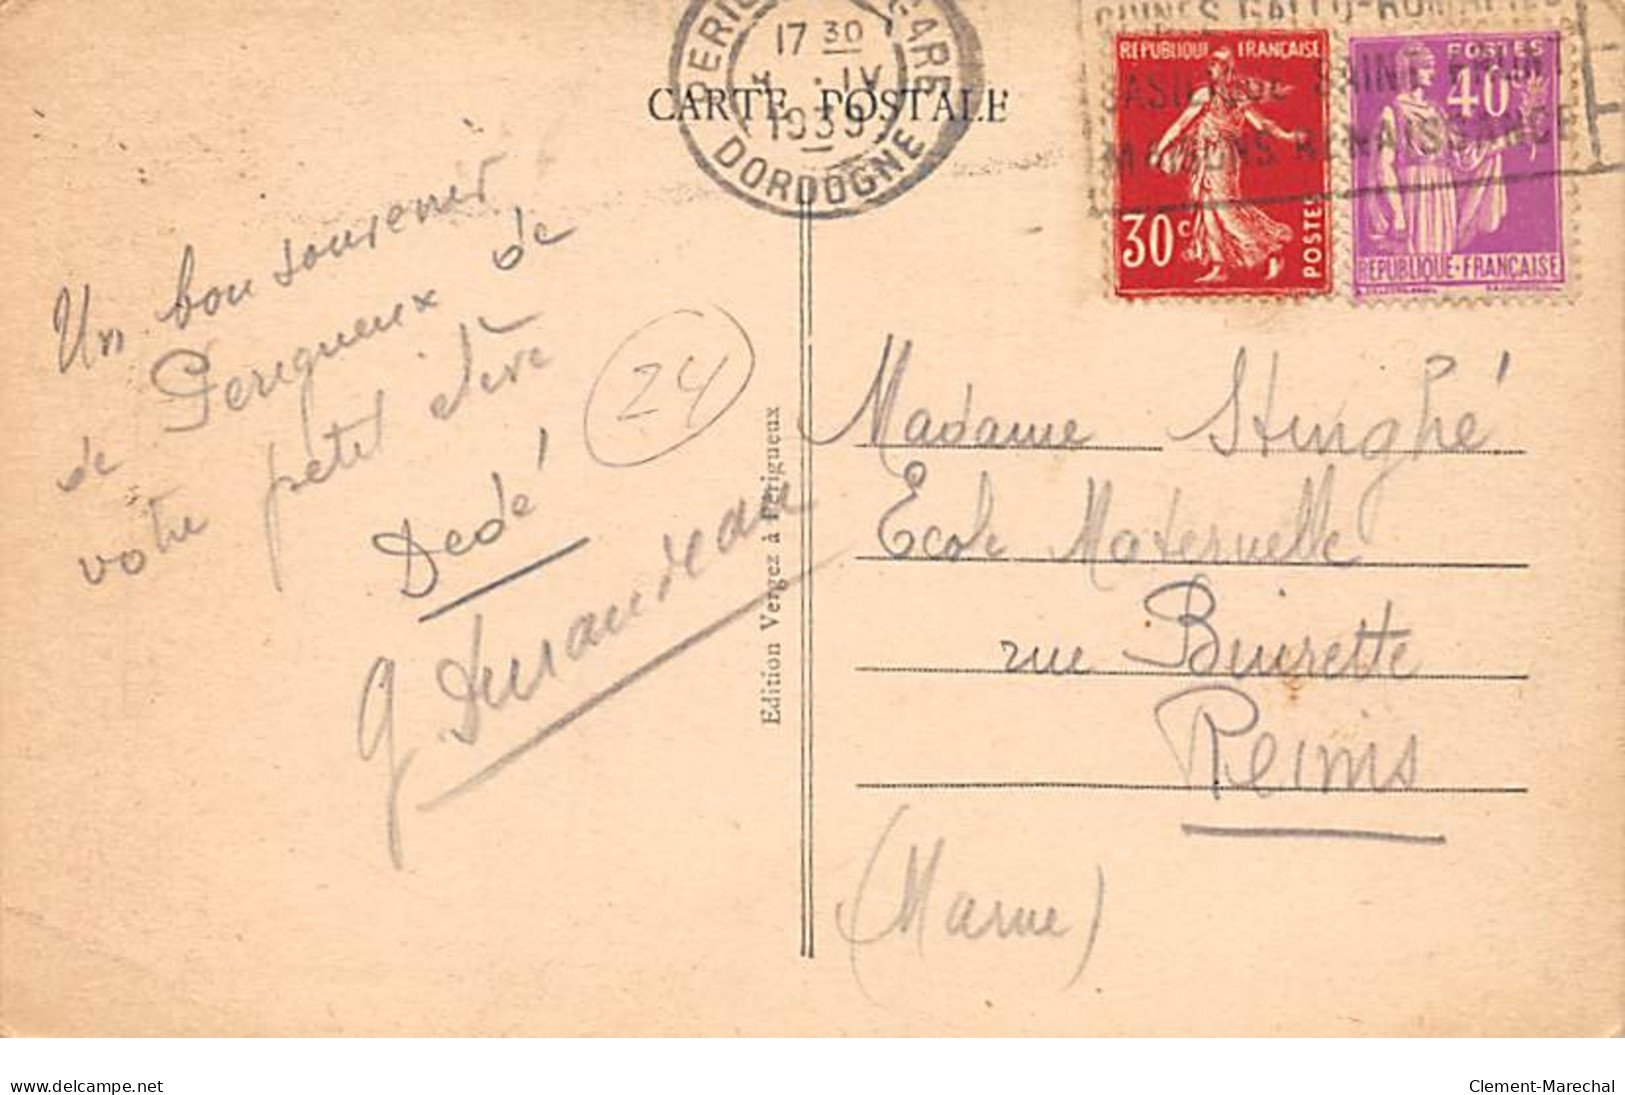 CARTE POSTALE
GARE
17 30
IV
1939
DORDOGNE
BASILIQUE SAINT FRONT
MAISONS RENAISSANCE
REPUBLIQUE FRANÇAISE
30c
POSTES
POSTES
40c
REPUBLIQUE-FRANÇAISE
Un bon souvenir
de Perigueux de
votre petit élève
Dedé
G. Durandeau
24
Edition Vergez à Périgueux
Madame Stinghé
Ecole Maternelle
rue Buirette
Reims
(Marne)
www.delcampe.net
Clement-Marechal